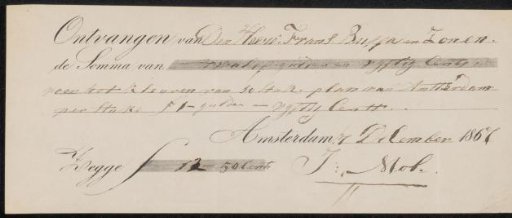 Ontvangen van Den Heer Frans Buffa en Zonen.
de Somma van Twalef gulden en vyftig Cents
voor het kleuren van 50 stuks plan van Amsterdam
per stuks gulden vyftig Cents
Amsterdam, 7 December 186
Zegge f 12 50 Cent J: Mol.